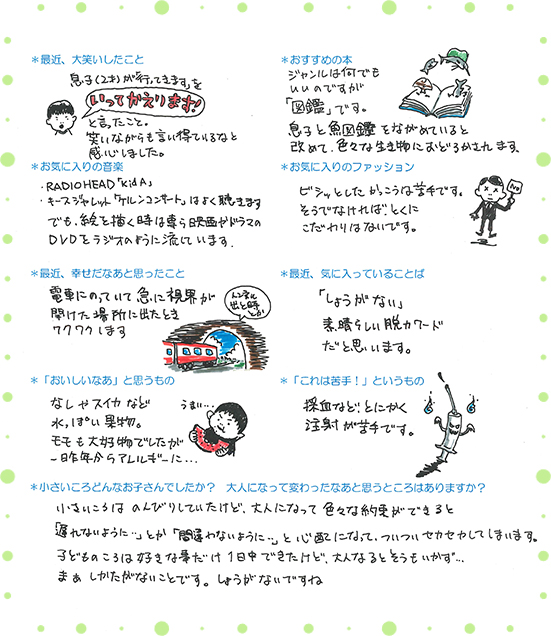 ＊最近、大笑いしたこと
息子(2才)が「行ってきます」を
いってかえります!
と言ったこと。
笑いながらも言い得ているなと
感心しました。
＊おすすめの本
ジャンルは何でも
いいのですが
「図鑑」です。
息子と魚図鑑をながめていると
改めて、色々な生き物におどろかされます。
＊お気に入りの音楽
・RADIOHEAD「kid A」
・キース・ジャレット「ケルンコンサート」はよく聴きます
でも、絵を描く時は専ら映画やドラマの
DVDをラジオのように流しています.
＊お気に入りのファッション
ビシッとしたかっこうは苦手です。
そうでなければ、とくに
こだわりはないです。
NO
＊最近、幸せだなあと思ったこと
電車にのっていて急に視界が
開けた場所に出たとき
ワクワクします
トンネル
出た時
とか
＊最近、気に入っていることば
「しょうがない」
素晴らしい脱力ワード
だと思います。
＊「おいしいなあ」と思うもの
なしやスイカなど
水っぽい果物。
モモも大好物でしたが
一昨年からアレルギーに…
うまい…
＊「これは苦手！」というもの
採血など、とにかく
注射が苦手です。
＊小さいころどんなお子さんでしたか？　大人になって変わったなあと思うところはありますか？
小さいころは のんびりしていたけど、大人になって 色々な約束ができると
「遅れないように…」とか「間違わないように…」と心配になって、ついついセカセカしてしまいます。
子どものころは好きな事だけ 1日中できたけど、大人なるとそうもいかず…
まぁ しかたがないことです。しょうがないですね